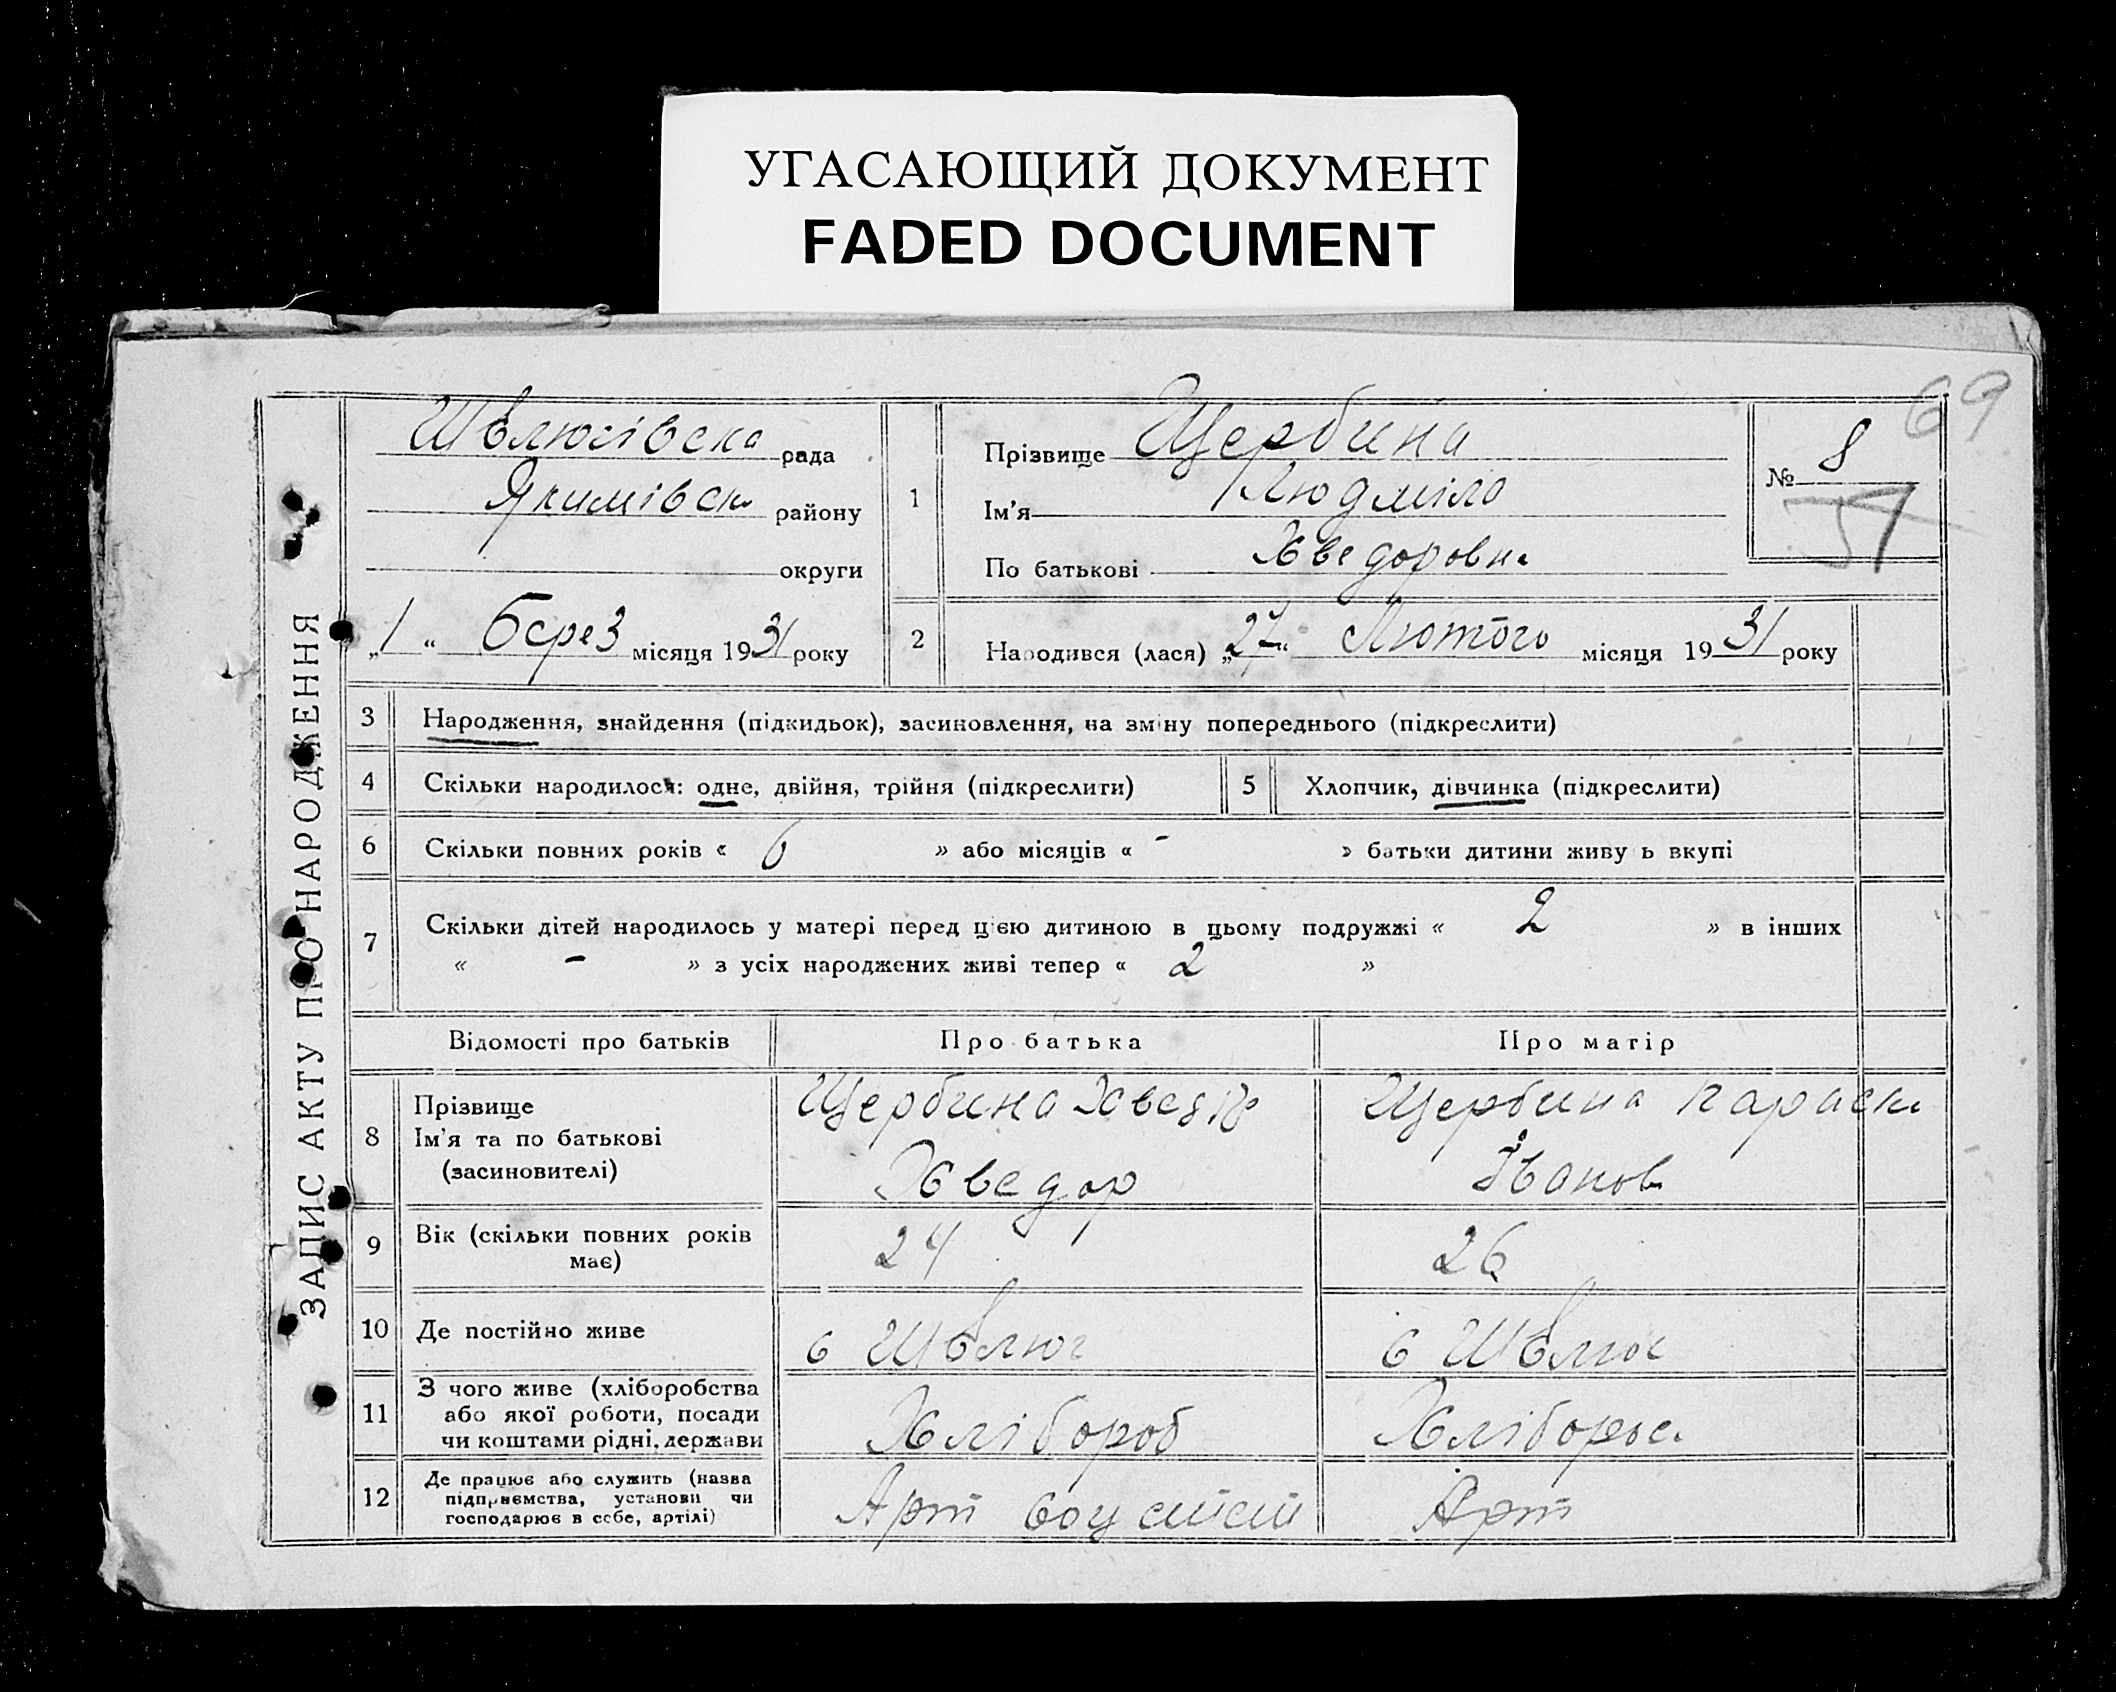 УГАСАЮЩИЙ ДОКУМЕНТ
FADED DOCUMENT
69
ЗАПИС АКТУ ПРО НАРОДЖЕННЯ
Швлюсівска рада
Якимівск району
округи
„1“ Берез місяця 1931 року
1
Прізвище Щербина
Ім'я Людміла
По батькові Хведоровна
№ 8
2
Народився (лася) „27“ Лютого місяця 1931 року
3 Народження, знайдення (підкидьок), засиновлення, на зміну попереднього (підкреслити)
4 Скільки народилося: одне, двійня, трійня (підкреслити)
5 Хлопчик, дівчинка (підкреслити)
6 Скільки повних років « 6 » або місяців « - » батьки дитини живуть вкупі
7 Скільки дітей народилось у матері перед цією дитиною в цьому подружжі « 2 » в інших
« - » з усіх народжених живі тепер « 2 »
Відомості про батьків Про батька Про матір
8 Прізвище
Ім'я та по батькові
(засиновителі)
Щербина Хведір
Хведор
Щербина Параск
Іванов
9 Вік (скільки повних років
має)
24
26
10 Де постійно живе
с Швлюс
с Швлюс
11 З чого живе (хліборобства
або якої роботи, посади
чи коштами рідні, держави
Хлібороб
12 Де працює або служить (назва
підприємства, установи чи
господарює в себе, артілі)
Арт
Арт